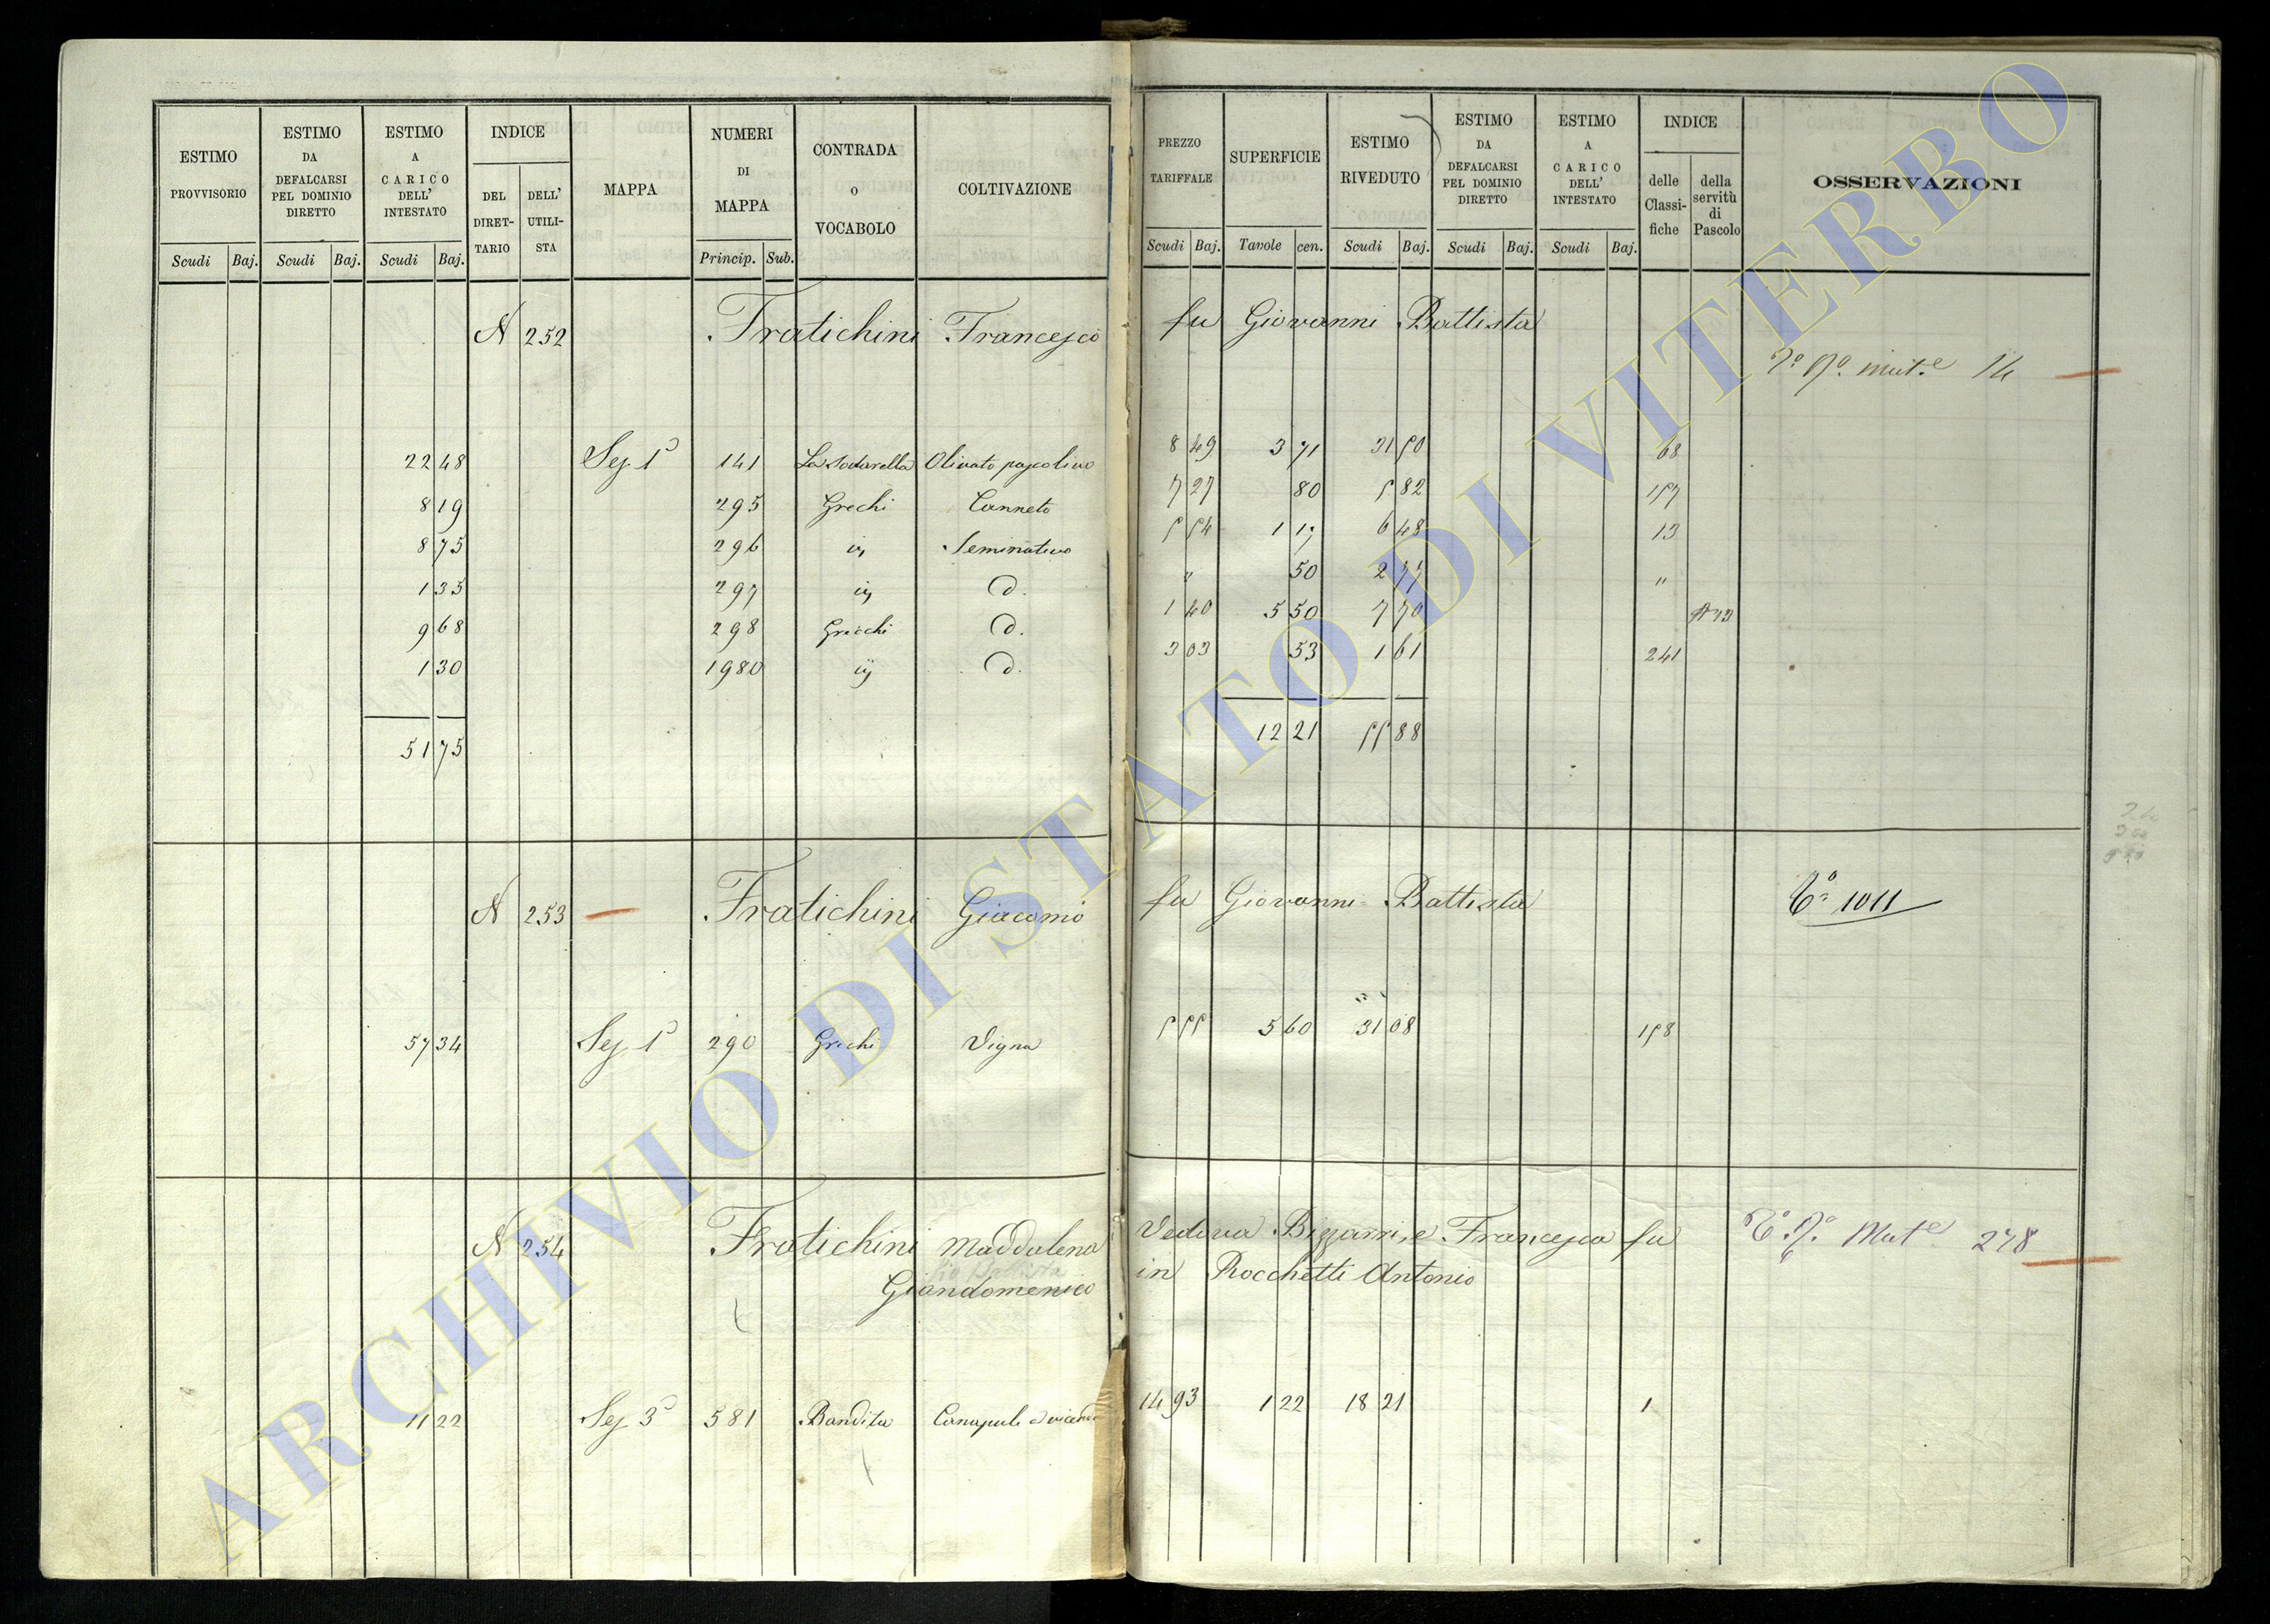 ESTIMO PROVVISORIO | ESTIMO DA DEFALCARSI PEL DOMINIO DIRETTO | ESTIMO A CARICO DELL' INTESTATO | INDICE | MAPPA | NUMERI DI MAPPA | CONTRADA o VOCABOLO | COLTIVAZIONE | PREZZO TARIFFALE | SUPERFICIE | ESTIMO RIVEDUTO | ESTIMO DA DEFALCARSI PEL DOMINIO DIRETTO | ESTIMO A CARICO DELL' INTESTATO | INDICE | OSSERVAZIONI
DEL DIRETTARIO | DELL' UTILISTA | delle Classifiche | della servitù di Pascolo
Scudi | Baj. | Scudi | Baj. | Scudi | Baj. | Princip. | Sub. | Scudi | Baj. | Tavole | cen. | Scudi | Baj. | Scudi | Baj. | Scudi | Baj.
N 252 Fratichini Francesco fu Giovanni Battista
mut.e 14
22 48 Sez 1ª 141 Olivato pascolivo 8 49 3 71 31 50 68
8 19 295 Grechi Canneto 7 27 80 5 82 157
8 75 296 Seminativo 5 54 1 17 6 48 13
1 35 297 D. " 50 2 77 "
9 68 298 Grechi D. 1 40 5 50 7 70
1 30 1980 D. 3 03 53 1 61 241
51 75 12 21 55 88
N 253 Fratichini Giacomo fu Giovanni Battista 1011
57 34 Sez 1ª 290 Grechi Vigna 5 55 5 60 31 08 158
N 254 Fratichini Maddalena Vedova Bizzarri, e Francesca fu Mut.e 278
Giandomenico in Rocchetti Antonio
11 22 Sez 3ª 581 Bandita Canapule a vicenda 14 93 1 22 18 21 1
ARCHIVIO DI STATO DI VITERBO